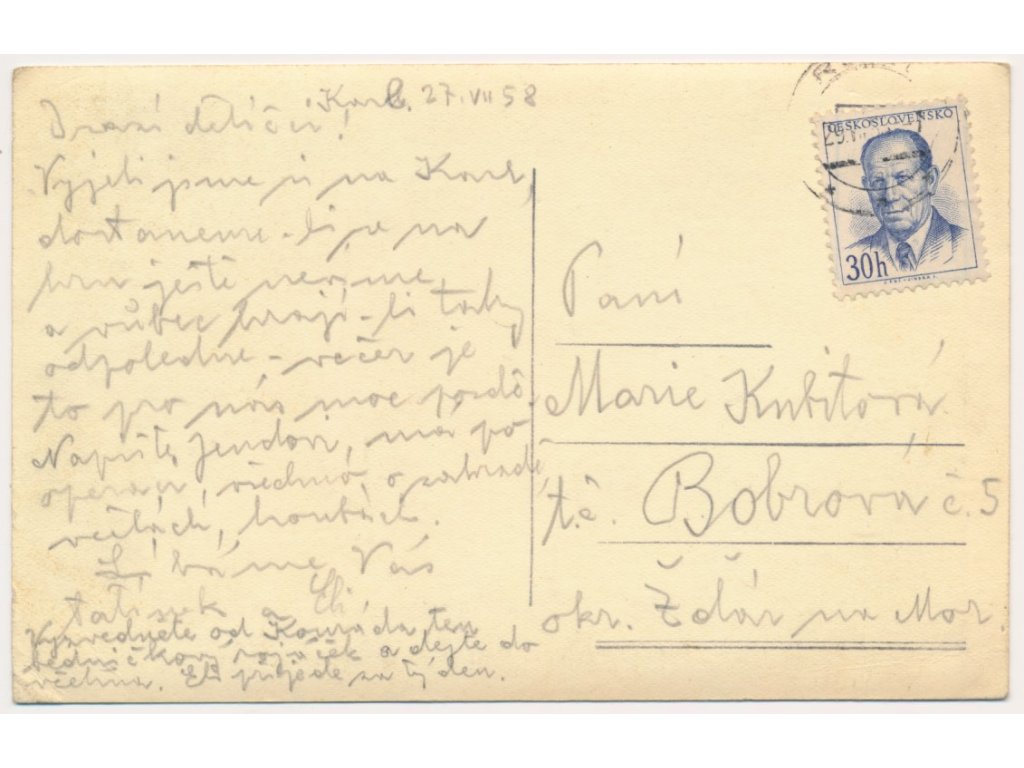 Karl. 27.VII 58
Drazí dětičci!
Vyjeli jsme si na Karl.,
dostaneme-li se na
hru ještě nevíme
a vůbec hrají-li taky
odpoledne - večer je
to pro nás moc pozdě.
Napište, Jendovi, má po
operaci, všechno o zahradě
včelách, houbách.
Líbáme Vás
tatínek a Eli
Vyzvedněte od Konráda ten
a dejte do
včelína. Eli přijede za týden.
ČESKOSLOVENSKO
30h
29.VII
Paní
Marie Kubitová
t.č. Bobrová č. 5
okr. Žďár na Mor.